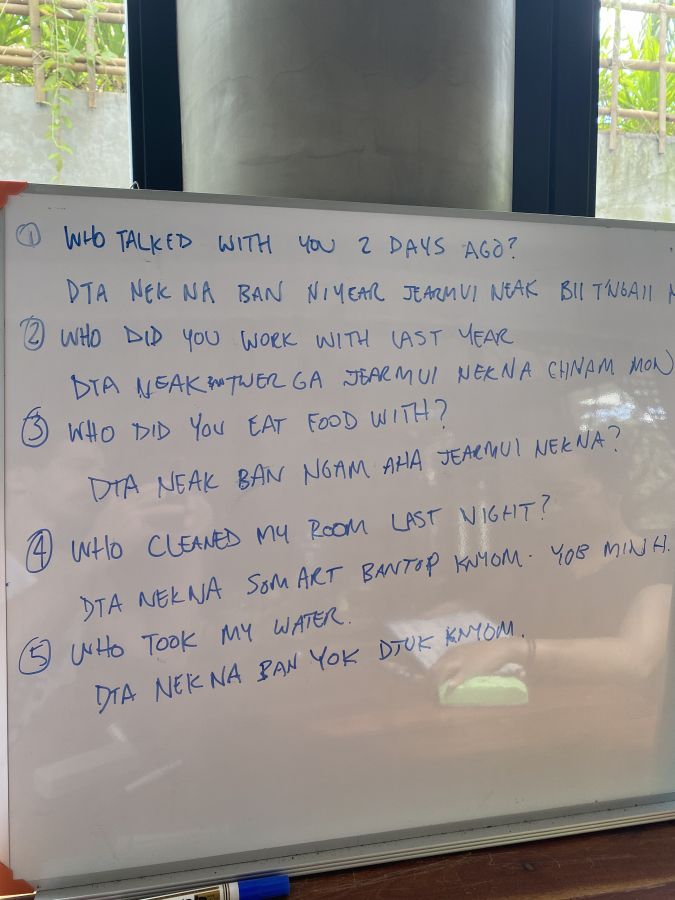 ① WHO TALKED WITH YOU 2 DAYS AGO?
DTA NEK NA BAN NIYEAR JEARMUI NEAK BII T'NGAII
② WHO DID YOU WORK WITH LAST YEAR
DTA NEAK TWER GA JEARMUI NEKNA CHNAM MON
③ WHO DID YOU EAT FOOD WITH?
DTA NEAK BAN NGAM AHA JEARMUI NEKNA?
④ WHO CLEANED MY ROOM LAST NIGHT?
DTA NEKNA SOMART BANTOP KNYOM. YOB MINH.
⑤ WHO TOOK MY WATER.
DTA NEKNA BAN YOK DTUK KNYOM.